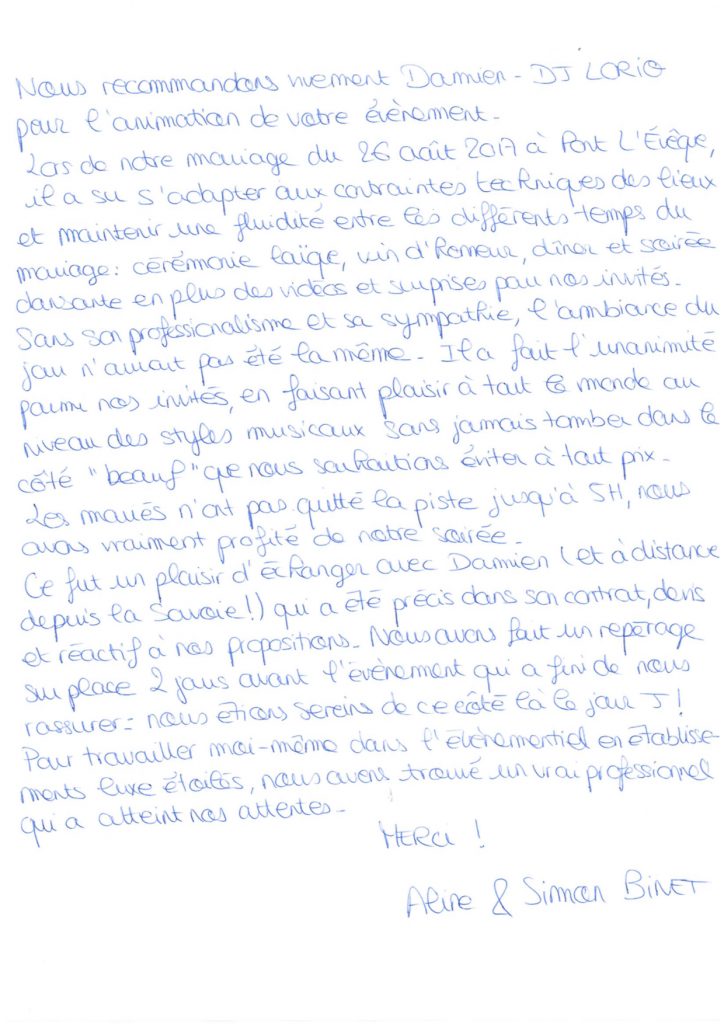 Nous recommandons vivement Damien - DJ LORIO
pour l'animation de votre évènement.
Lors de notre mariage du 26 août 2017 à Pont L'Évêque,
il a su s'adapter aux contraintes techniques des lieux
et maintenir une fluidité entre les différents temps du
mariage : cérémonie laïque, vin d'honneur, dîner et soirée
dansante en plus des vidéos et surprises par nos invités.
Sans son professionalisme et sa sympathie, l'ambiance du
jour n'aurait pas été la même. Il a fait l'unanimité
parmi nos invités, en faisant plaisir à tout le monde au
niveau des styles musicaux sans jamais tomber dans le
côté "beauf" que nous souhaitions éviter à tout prix.
Les mariés n'ont pas quitté la piste jusqu'à 5H, nous
avons vraiment profité de notre soirée.
Ce fut un plaisir d'échanger avec Damien (et à distance
depuis la Savoie!) qui a été précis dans son contrat, devis
et réactif à nos propositions. Nous avons fait un repérage
sur place 2 jours avant l'évènement qui a fini de nous
rassurer = nous étions sereins de ce côté là le jour J!
Pour travailler moi-même dans l'évènementiel en établisse
ments luxe étoilés, nous avons trouvé un vrai professionnel
qui a atteint nos attentes.
MERCI !
Aline & Simon BINET